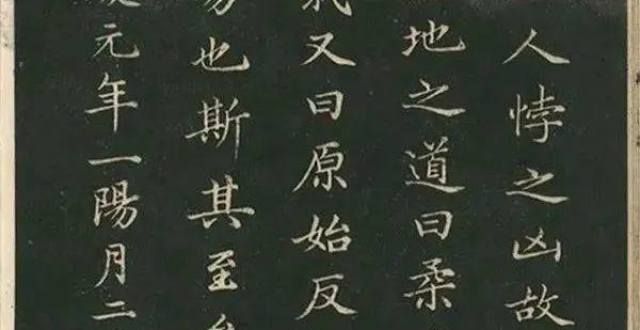 人悖之凶故
地之道曰柔
又曰原始反
也斯其至
元年一陽月二